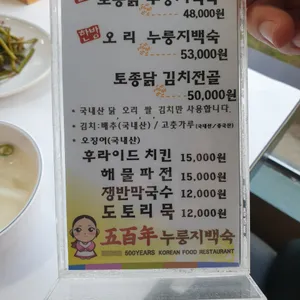 토종닭 누룽지백숙
48,000원
한방 오리 누룽지백숙
53,000원
토종닭 김치전골
50,000원
• 국내산 닭 오리 쌀 김치만 사용합니다.
• 김치:배추(국내산) / 고춧가루(국내산/중국산)
• 오징어(국내산)
후라이드 치킨 15,000원
해물파전 15,000원
쟁반막국수 12,000원
도토리묵 12,000원
五百年 누룽지백숙
500YEARS KOREAN FOOD RESTAURANT